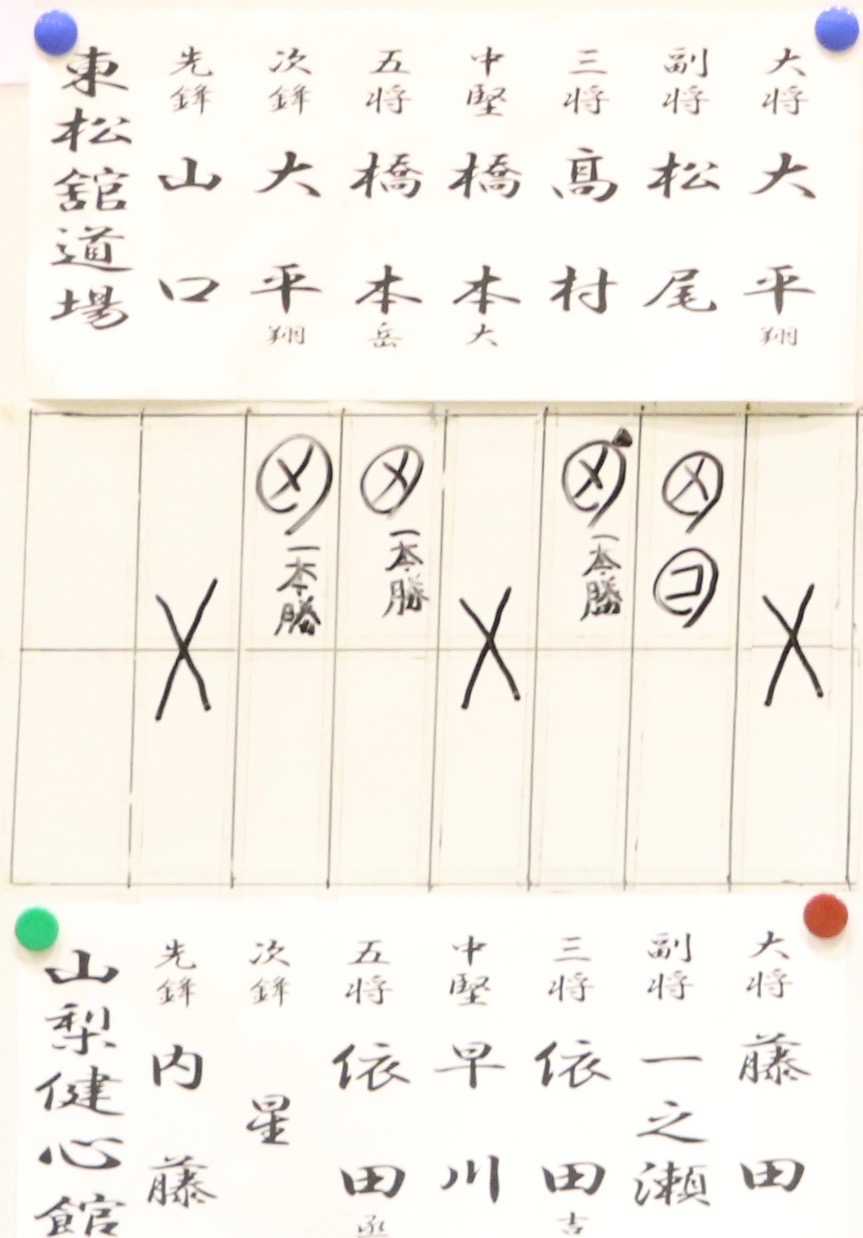 東松舘道場
先鋒 山口
次鋒 大平 翔
五将 橋本 岳
中堅 橋本 大
三将 髙村
副将 松尾
大将 大平 翔
メ 一本勝
メ 一本勝
メ 一本勝
メ コ
山梨健心館
先鋒 内藤
次鋒 星
五将 依田 丞
中堅 早川
三将 依田 吉
副将 一之瀬
大将 藤田